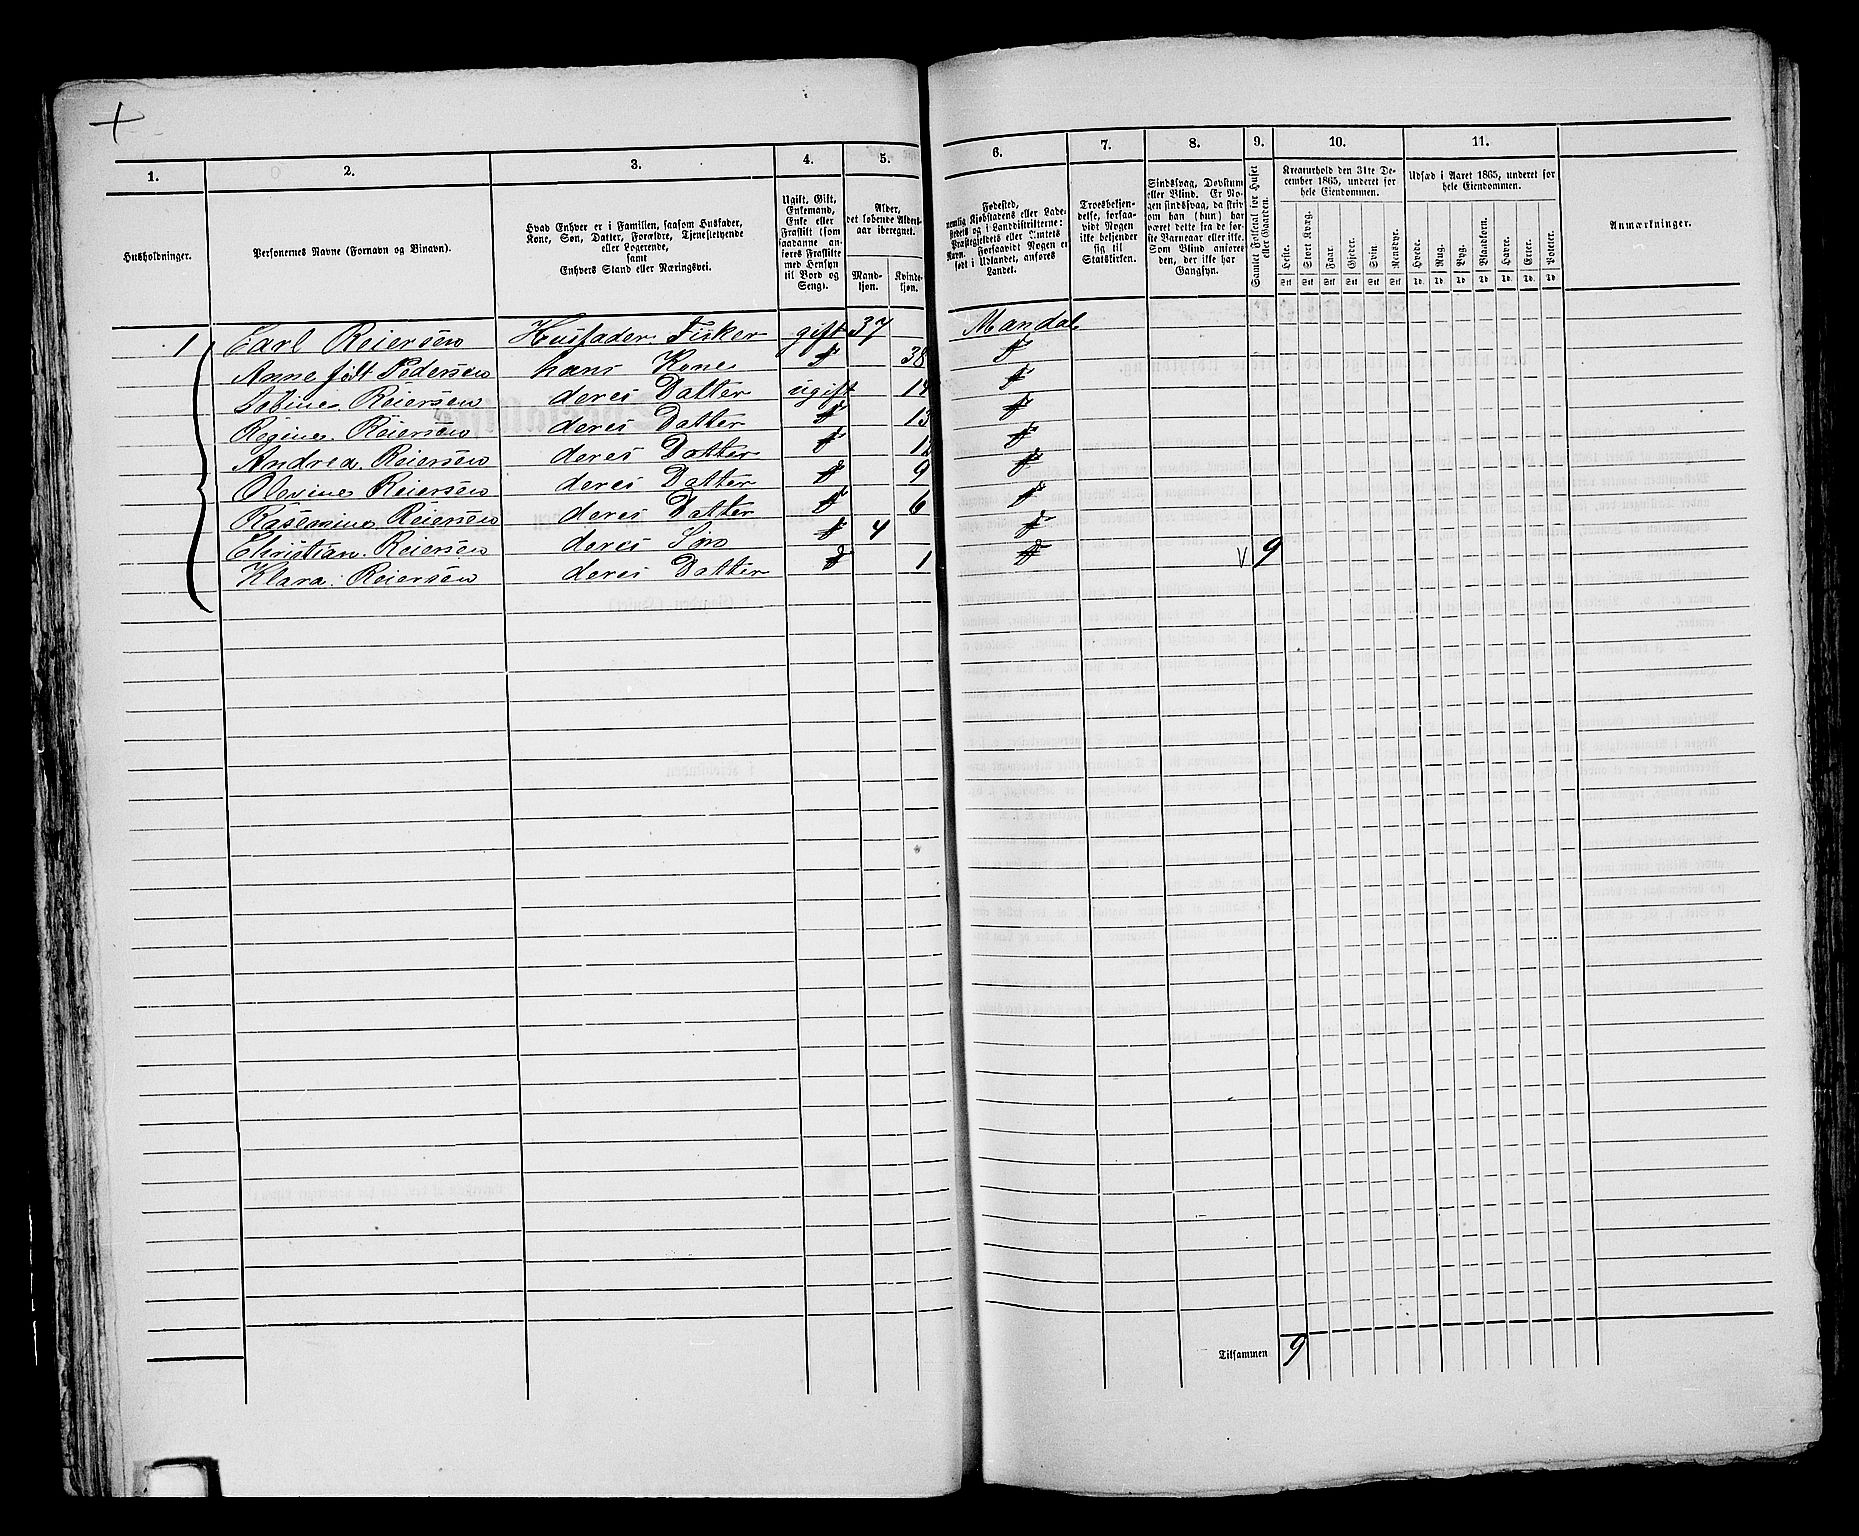 1. 2. 3. 4. 5. 6. 7. 8. 9. 10. 11.
Husholdninger.
Personernes Navne (Fornavn og Binavn).
Hvad Enhver er i Familien, saasom Husfader,
Kone, Søn, Datter, Forældre, Tjenestetyende
eller Logerende,
samt
Enhvers Stand eller Næringsvei.
Ugift, Gift,
Enkemand,
Enke eller
Fraskilt (som
saadanne an-
føres Fraskilte
med Hensyn
til Bord og
Seng).
Alder,
det løbende Alders-
aar iberegnet.
Mand-
kjøn.
Kvinde-
kjøn.
Fødested,
nemlig Kjøbstadens eller Lade-
stedets og i Landdistrikterne:
Præstegjeldets eller Amtets
Navn. Forsaavidt Nogen er
født i Udlandet, anføres
Landet.
Troesbekjen-
delse, forsaa-
vidt Nogen
ikke bekjender
sig til
Statskirken.
Sindssvag, Døvstum
eller Blind. Er No-
gen sindssvag, da skriv
om han (hun) har
været dette fra de før-
ste Barneaar eller ikke.
Som Blind anføres
den, der ikke har
Gangsyn.
Samlet Folketal for Huset
eller Gaarden.
Kreaturhold den 31te De-
cember 1865, underet for
hele Eiendommen.
Heste. Stort Kvæg. Faar. Gjeder. Svin Rensdyr.
Stk Stk Stk Stk Stk Stk
Udsæd i Aaret 1865, underet for
hele Eiendommen.
Hvede. Rug. Byg. Blandkorn. Havre. Erter. Poteter.
Td. Td Td Td Td. Td. Td
Anmærkninger.
1 Carl Reiersen Husfader Fisker gift 37 Mandal
Anne født Pedersen hans Kone 38
Reiersen deres Datter ugift
Regine Reiersen deres Datter 13
Andrea Reiersen deres Datter 12
Olevine Reiersen deres Datter 9
Rasemine Reiersen deres Datter 6
Christian Reiersen deres Søn 4
Klara Reiersen deres Datter 1 V 9
Tilsammen 9